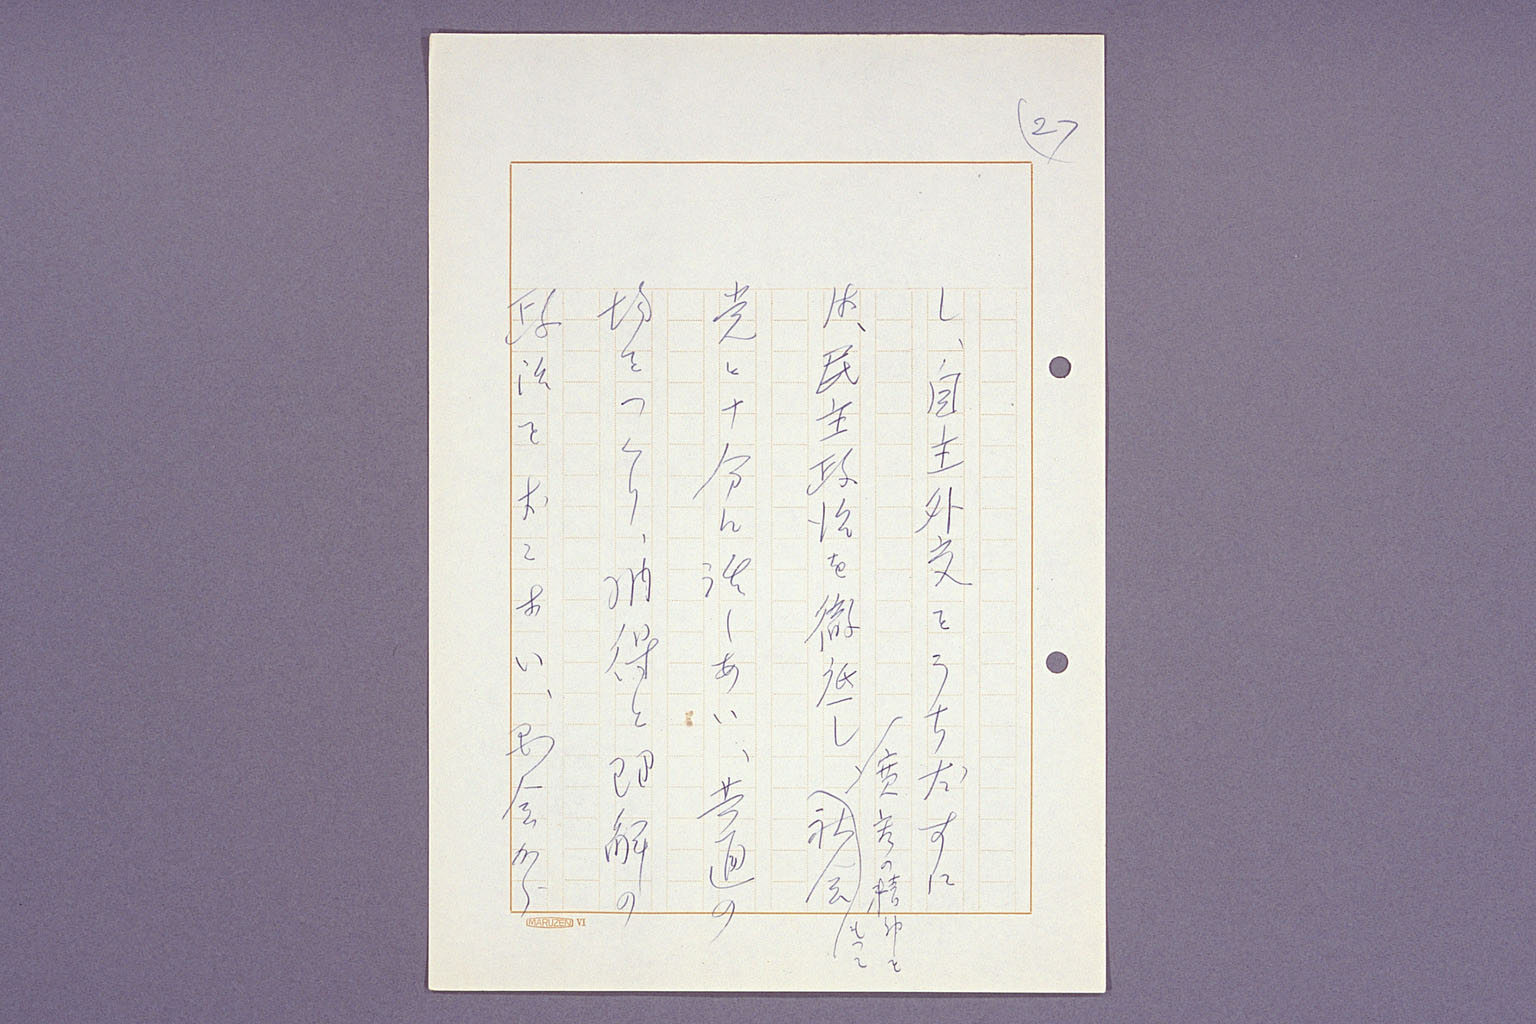 27
し、自主外交をうちだすに
は、民主政治を徹底し
寛容の精神を
もって
社会
党と十分に話しあい、共通の
場をつくり、納得と理解の
政治をおこない、国会から
MARUZEN VI